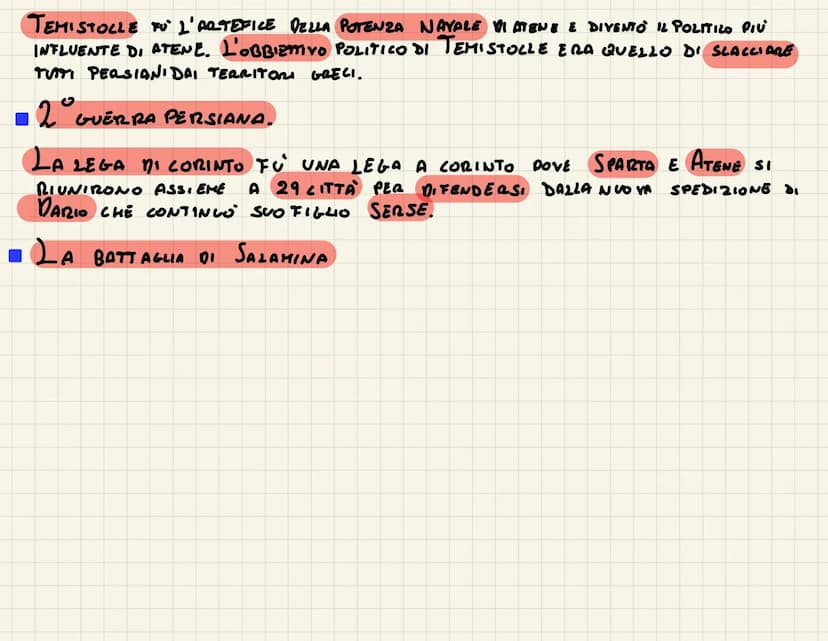 TEMISTOLLE FÙ L'ARTEFICE DELLA POTENZA NAVALE DI ATENE E DIVENTÒ IL POLITICO PIÙ
INFLUENTE DI ATENE. L'OBBIETTIVO POLITICO DI TEMISTOLLE ERA QUELLO DI SCACCIARE
TUTTI PERSIANI DAI TERRITORI GRECI.
2° GUERRA PERSIANA.
LA LEGA DI CORINTO FÙ UNA LEGA A CORINTO DOVE SPARTA E ATENE SI
RIUNIRONO ASSIEME A 29 CITTÀ PER DIFENDERSI DALLA NUOVA SPEDIZIONE DI
DARIO CHE CONTINUÒ SUO FIGLIO SERSE.
LA BATTAGLIA DI SALAMINA